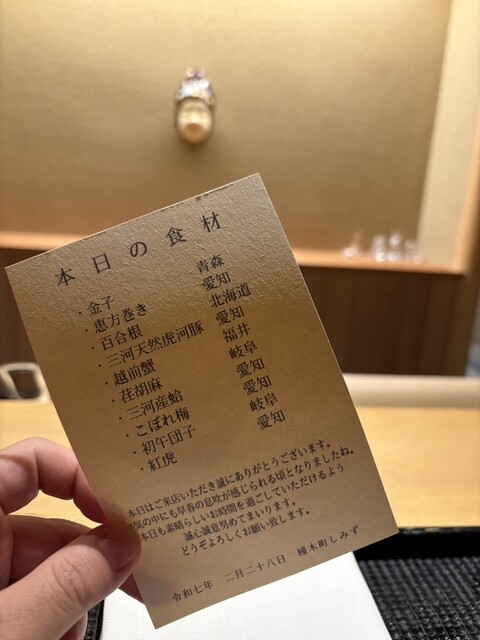 本日の食材
・金子 青森
・恵方巻き 愛知
・百合根 北海道
・三河天然虎河豚 愛知
・越前蟹 福井
・荏胡麻 岐阜
・三河産蛤 愛知
・こぼれ梅 愛知
・初午団子 岐阜
・紅虎 愛知
本日はご来店いただき誠にありがとうございます。
気の中にも早春の息吹が感じられる頃となりましたね。
本日も素晴らしいお時間を過ごしていただけるよう
誠心誠意努めてまいります。
どうぞよろしくお願い致します。
令和七年 二月二十八日 橦木町しみず